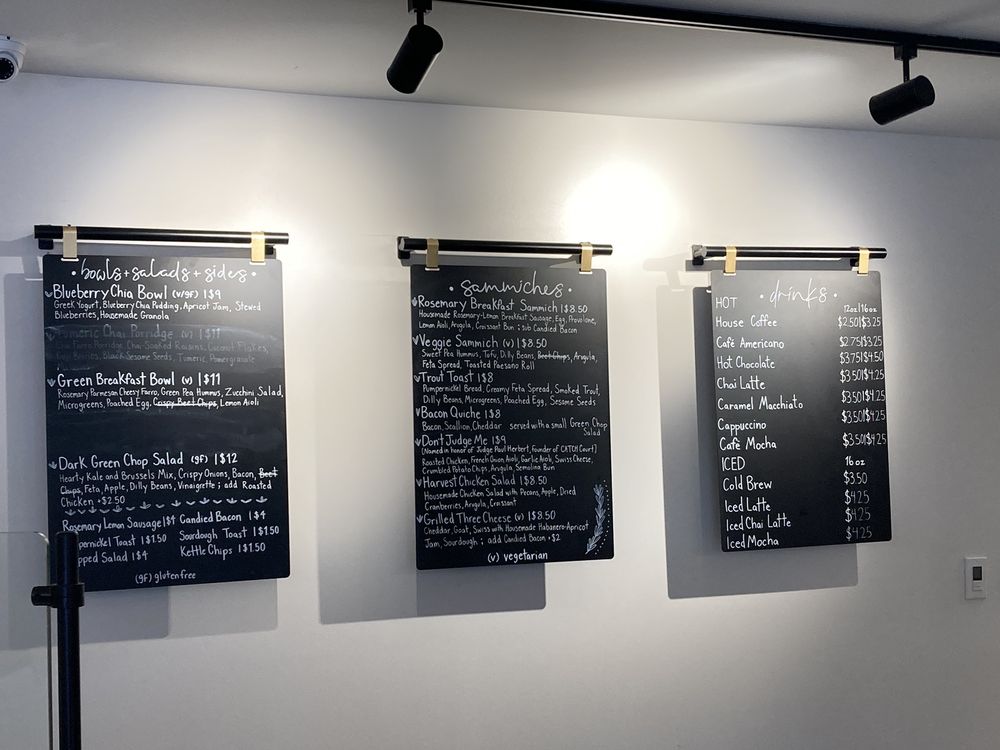 • bowls + salads + sides •
Blueberry Chia Bowl (v/gf) | $9
Greek Yogurt, Blueberry Chia Pudding, Apricot Jam, Stewed
Blueberries, Housemade Granola
Turmeric Chai Porridge (v) | $11
Chai Farro Porridge, Chai-Soaked Raisins, Coconut Flakes,
Goji Berries, Black Sesame Seeds, Tumeric Pomegranate
Green Breakfast Bowl (v) | $11
Rosemary Parmesan Cheesy Farro, Green Pea Hummus, Zucchini Salad,
Microgreens, Poached Egg, Crispy Beet Chips, Lemon Aioli
Dark Green Chop Salad (gf) | $12
Hearty Kale and Brussels Mix, Crispy Onions, Bacon, Beet
Chips, Feta, Apple, Dilly Beans, Vinaigrette ; add Roasted
Chicken +$2.50
Rosemary Lemon Sausage | $4 Candied Bacon | $4
pernickel Toast | $1.50 Sourdough Toast | $1.50
pped Salad | $4 Kettle Chips | $1.50
(gf) gluten free
• sammiches •
Rosemary Breakfast Sammich | $8.50
Housemade Rosemary-Lemon Breakfast Sausage, Egg, Provolone,
Lemon Aioli, Arugula, Croissant Bun ; sub Candied Bacon
Veggie Sammich (v) | $8.50
Sweet Pea Hummus, Tofu, Dilly Beans, Beet Chips, Arugula,
Feta Spread, Toasted Paesano Roll
Trout Toast | $8
Pumpernickel Bread, Creamy Feta Spread, Smoked Trout,
Dilly Beans, Microgreens, Poached Egg, Sesame Seeds
Bacon Quiche | $8
Bacon, Scallion, Cheddar served with a small Green Chop
Salad
Don't Judge Me | $9
[Named in honor of Judge Paul Herbert, Founder of CATCH Court]
Roasted Chicken, French Onion Aioli, Garlic Aioli, Swiss Cheese,
Crumbled Potato Chips, Arugula, Semolina Bun
Harvest Chicken Salad | $8.50
Housemade Chicken Salad with Pecans, Apple, Dried
Cranberries, Arugula, Croissant
Grilled Three Cheese (v) | $8.50
Cheddar, Goat, Swiss with Housemade Habanero-Apricot
Jam, Sourdough ; add Candied Bacon +$2
(v) vegetarian
• drinks •
HOT 12oz | 16oz
House Coffee $2.50 | $3.25
Café Americano $2.75 | $3.25
Hot Chocolate $3.75 | $4.50
Chai Latte $3.50 | $4.25
Caramel Macchiato $3.50 | $4.25
Cappuccino $3.50 | $4.25
Café Mocha $3.50 | $4.25
ICED 16 oz
Cold Brew $3.50
Iced Latte $4.25
Iced Chai Latte $4.25
Iced Mocha $4.25